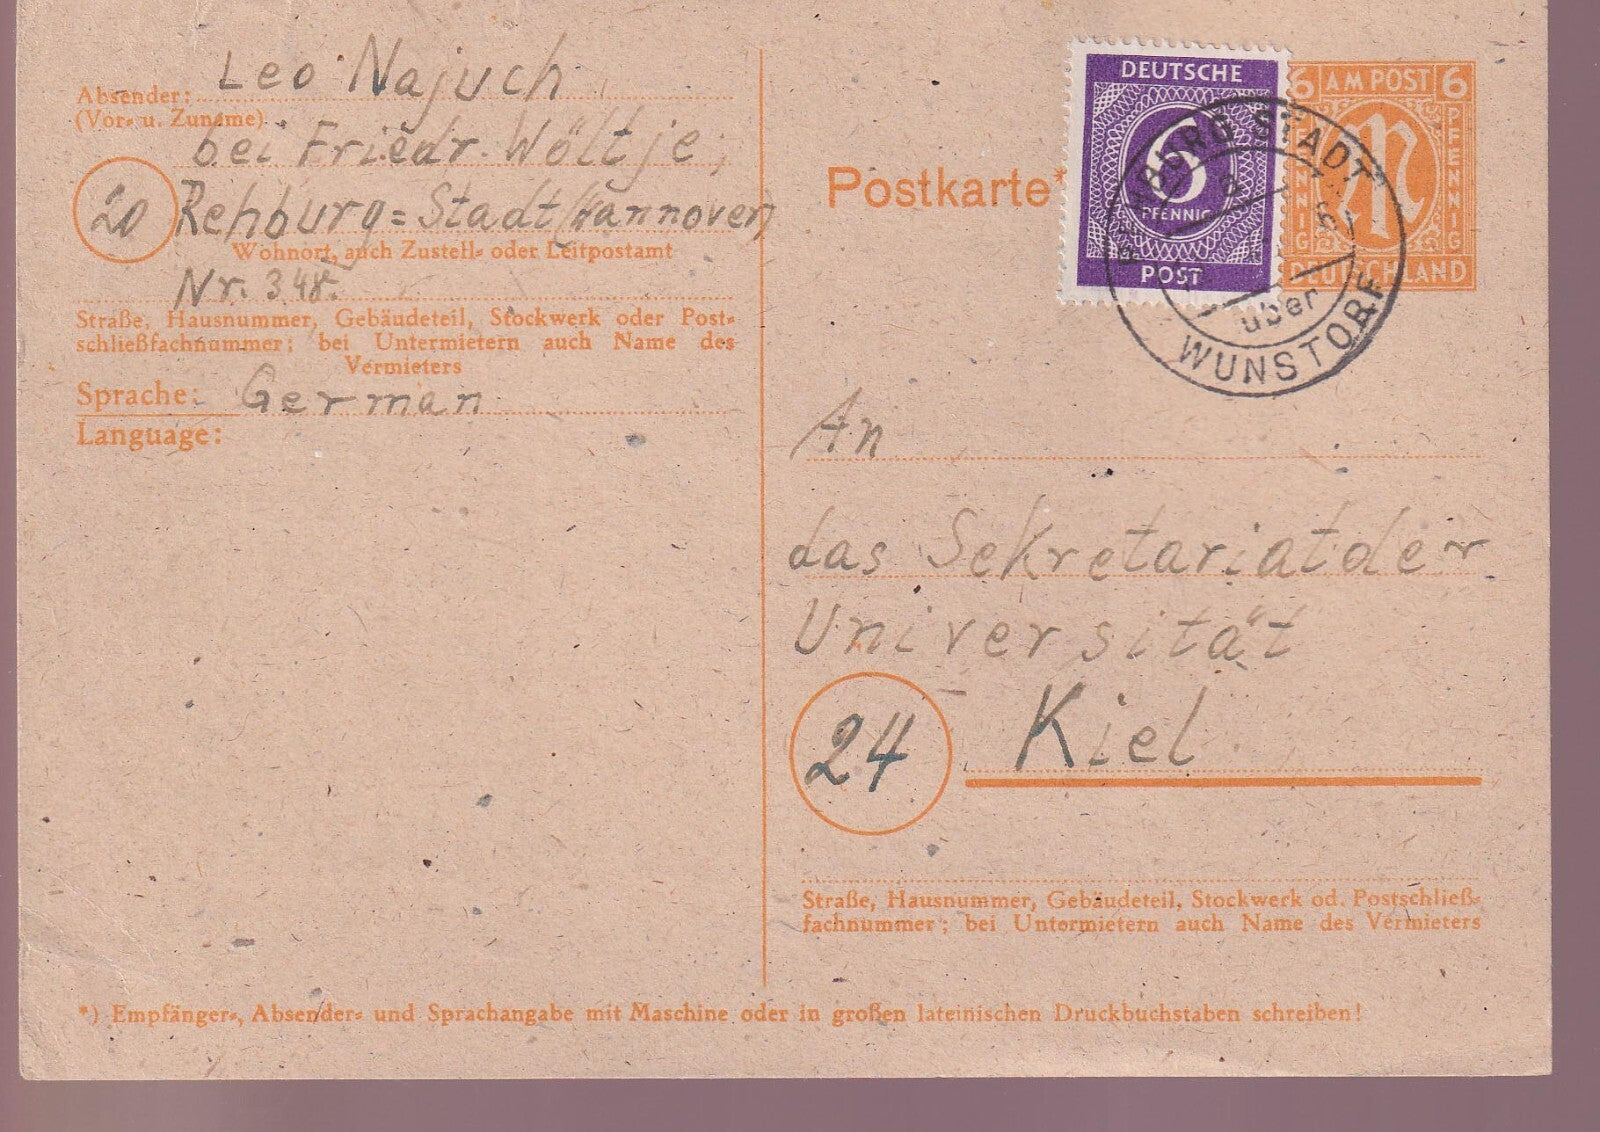 Absender: Leo Najuch
(Vor= u. Zuname)
bei Friedr. Wöltje,
20 Rehburg=Stadt (Hannover)
Wohnort, auch Zustell= oder Leitpostamt
Nr. 348.
Straße, Hausnummer, Gebäudeteil, Stockwerk oder Post=
schließfachnummer; bei Untermietern auch Name des
Vermieters
Sprache: German
Language:
Postkarte*
DEUTSCHE
6
PFENNIG
POST
6 AM POST 6
PFENNIG
PFENNIG
DEUTSCHLAND
REHBURG STADT
über
WUNSTORF
An
das Sekretariat der
Universität
24 Kiel
Straße, Hausnummer, Gebäudeteil, Stockwerk od. Postschließ=
fachnummer; bei Untermietern auch Name des Vermieters
*) Empfänger=, Absender= und Sprachangabe mit Maschine oder in großen lateinischen Druckbuchstaben schreiben!